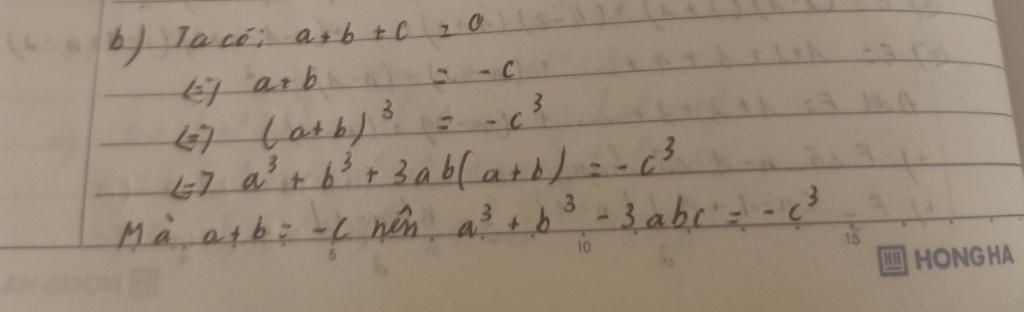 b) Ta có: a+b+c = 0
<=> a+b = -c
<=> (a+b)³ = -c³
<=> a³ + b³ + 3ab(a+b) = -c³
Mà a+b = -c nên a³ + b³ - 3abc = -c³
5 10 15
HH HONG HA